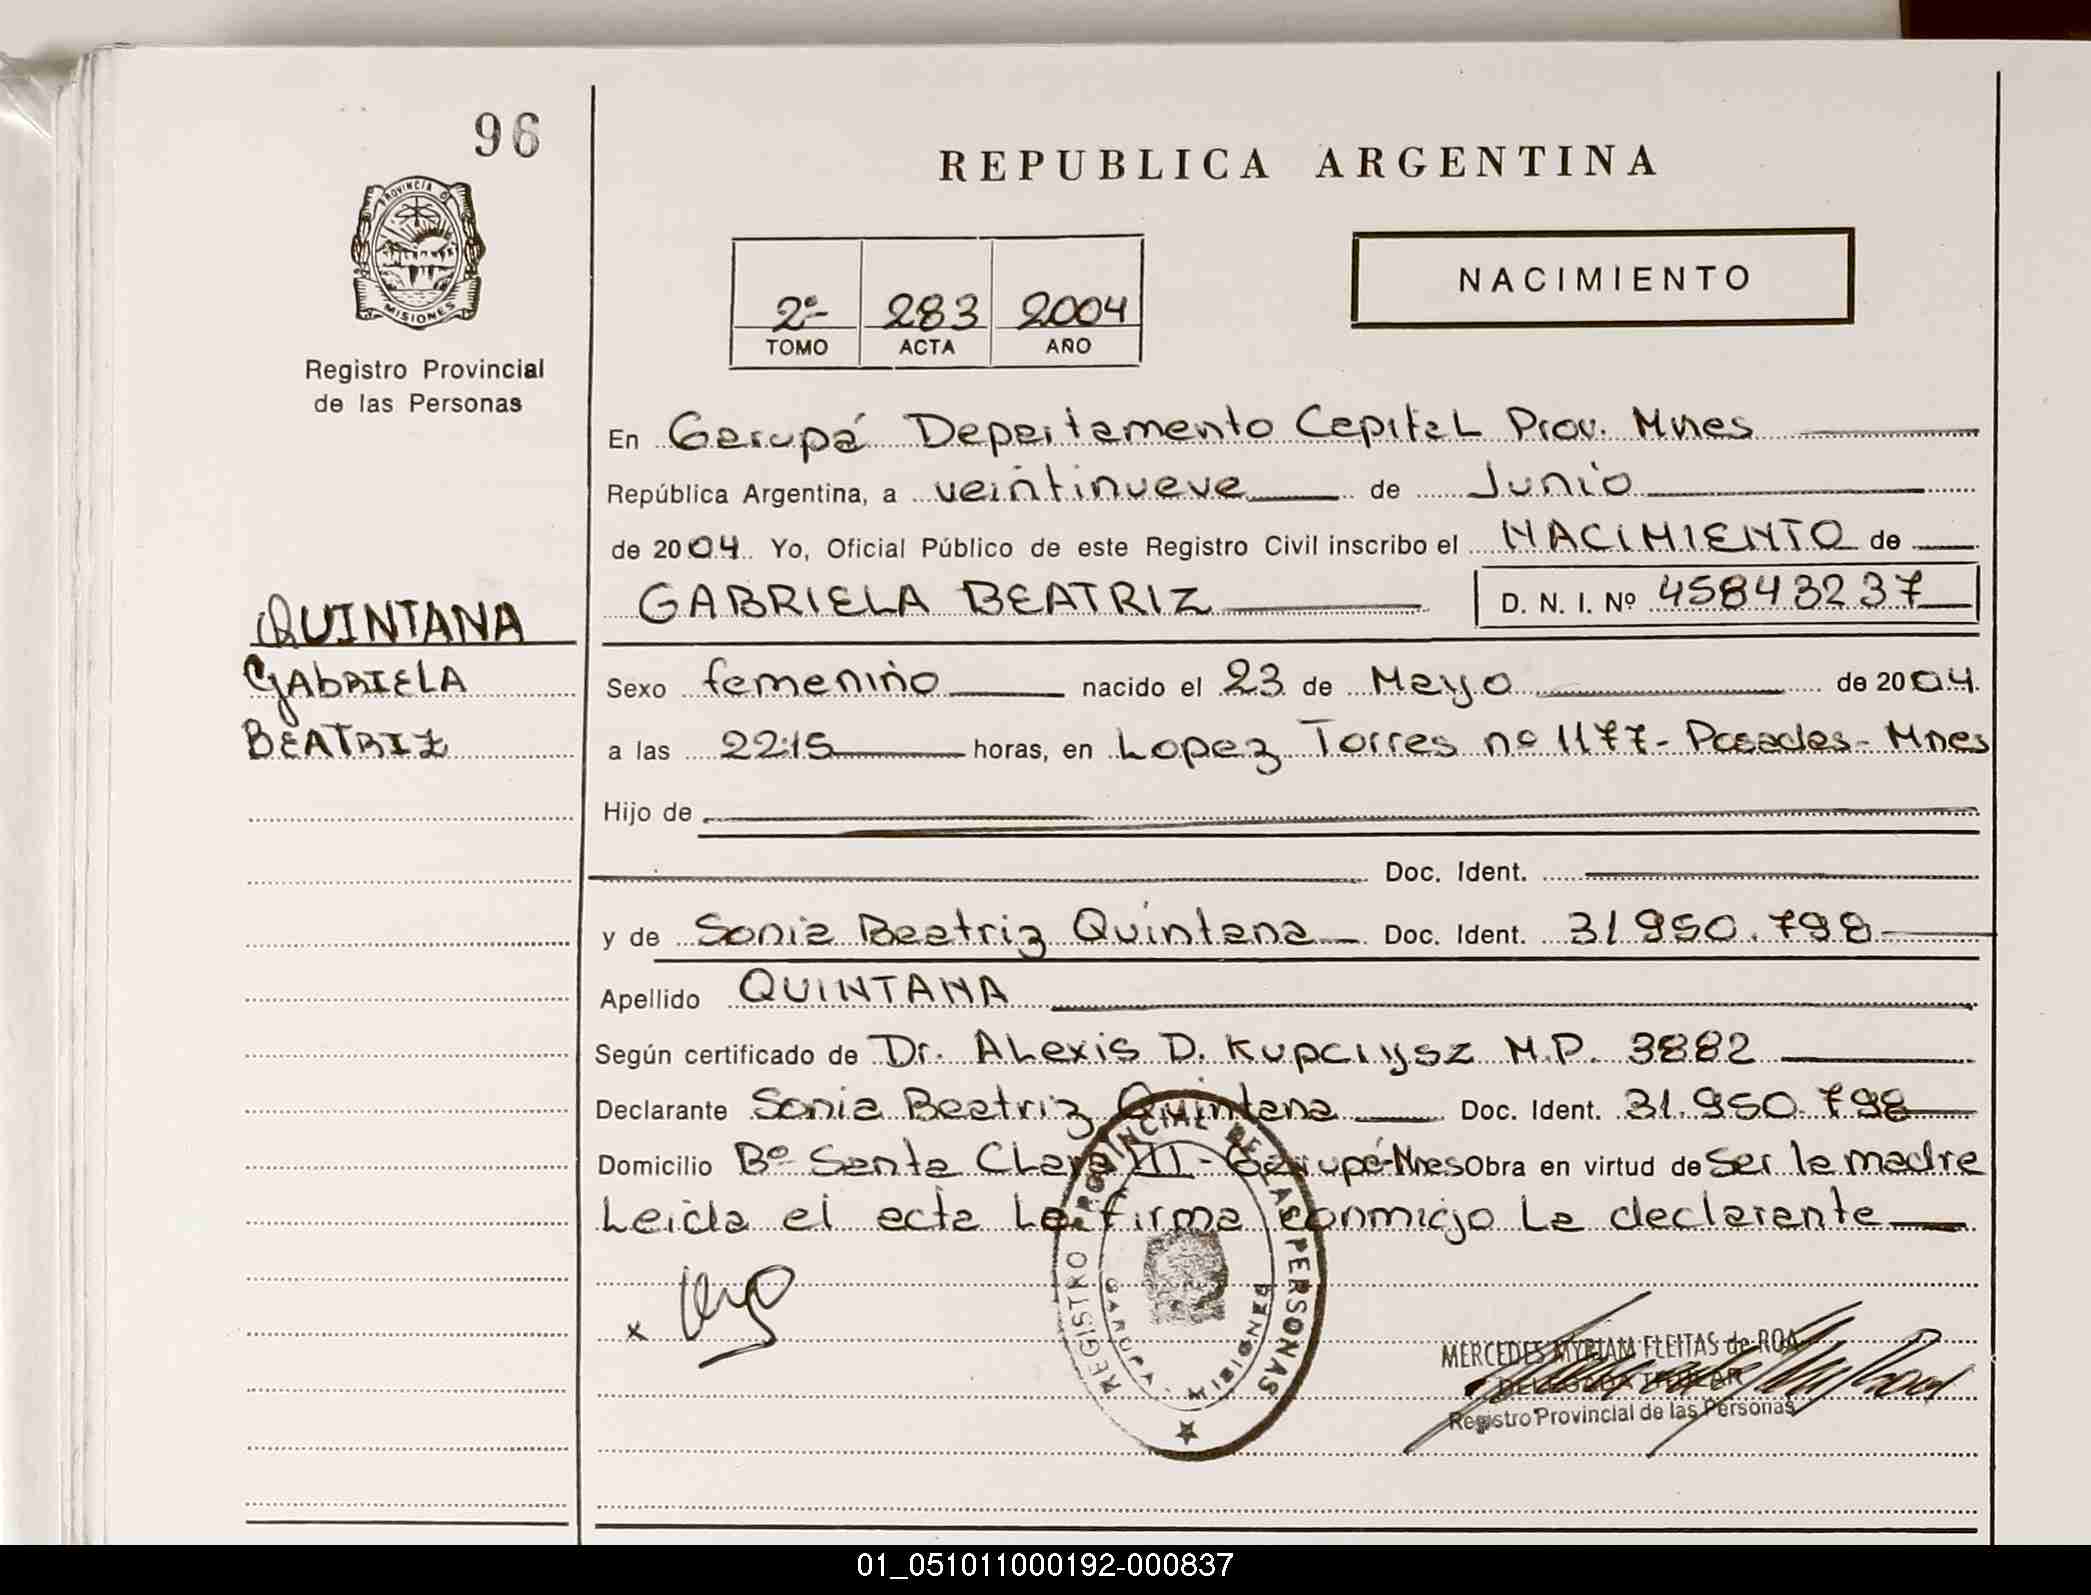 96
REPUBLICA ARGENTINA
PROVINCIA DE
MISIONES
Registro Provincial
de las Personas
2º 283 2004
TOMO ACTA AÑO
NACIMIENTO
En Garupá Departamento Capital Prov. Mnes
República Argentina, a veintinueve de Junio
de 2004. Yo, Oficial Público de este Registro Civil inscribo el NACIMIENTO de
GABRIELA BEATRIZ D. N. I. Nº 45843237
QUINTANA
GAbRIELA
BEATRIZ
Sexo femenino nacido el 23 de Mayo de 2004.
a las 22:15 horas, en Lopez Torres nº 1177- Posadas- Mnes
Hijo de
Doc. Ident.
y de Sonia Beatriz Quintana Doc. Ident. 31.950.798
Apellido QUINTANA
Según certificado de Dr. Alexis D. Kupciysz M.P. 3882
Declarante Sonia Beatriz Quintana Doc. Ident. 31.950.798
Domicilio Bº Santa Clara III - Garupá-Mnes Obra en virtud de Ser la madre
Leida el acta La firma conmigo La declarante
x
REGISTRO PROVINCIAL DE LAS PERSONAS
GARUPA - MISIONES
MERCEDES MYRIAM FLEITAS de ROA
DELEGADA TITULAR
Registro Provincial de las Personas
01_051011000192-000837